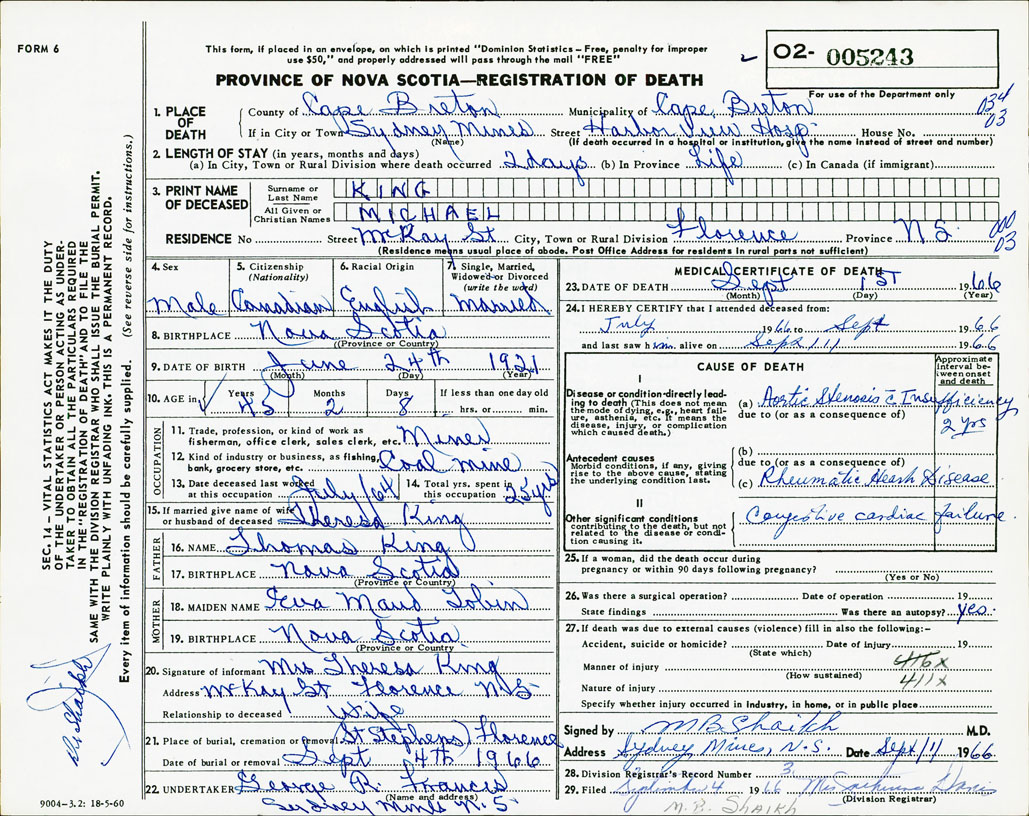 FORM 6
This form, if placed in an envelope, on which is printed "Dominion Statistics – Free, penalty for improper
use $50," and properly addressed will pass through the mail "FREE"
02- 005243
PROVINCE OF NOVA SCOTIA—REGISTRATION OF DEATH
For use of the Department only
1. PLACE OF DEATH County of Cape Breton Municipality of Cape Breton 034 03
If in City or Town Sydney Mines Street Harbor View Hosp. House No.
(Name) (If death occurred in a hospital or institution, give the name instead of street and number)
2. LENGTH OF STAY (in years, months and days)
(a) In City, Town or Rural Division where death occurred 2 days (b) In Province Life (c) In Canada (if immigrant)
3. PRINT NAME OF DECEASED Surname or Last Name KING
All Given or Christian Names MICHAEL
RESIDENCE No Street McKay St City, Town or Rural Division Florence Province N.S. 000 03
(Residence means usual place of abode. Post Office Address for residents in rural parts not sufficient)
4. Sex Male
5. Citizenship (Nationality) Canadian
6. Racial Origin English
7. Single, Married, Widowed or Divorced (write the word) Married
8. BIRTHPLACE Nova Scotia
(Province or Country)
9. DATE OF BIRTH June 24th 1921
(Month) (Day) (Year)
10. AGE in Years 45 Months 2 Days 8 If less than one day old hrs. or min.
OCCUPATION
11. Trade, profession, or kind of work as fisherman, office clerk, sales clerk, etc. Miner
12. Kind of industry or business, as fishing, bank, grocery store, etc. Coal mine
13. Date deceased last worked at this occupation July/64
14. Total yrs. spent in this occupation 25 yrs
15. If married give name of wife or husband of deceased Theresa King
FATHER
16. NAME Thomas King
17. BIRTHPLACE Nova Scotia
(Province or Country)
MOTHER
18. MAIDEN NAME Eva Maud Tobin
19. BIRTHPLACE Nova Scotia
(Province or Country)
20. Signature of informant Mrs Theresa King
Address McKay St Florence N.S
Relationship to deceased Wife
21. Place of burial, cremation or removal (St Stephens) Florence
Date of burial or removal Sept 4th 1966
22. UNDERTAKER George R. Francis
(Name and address)
Sydney Mines N.S
9004-3.2: 18-5-60
MEDICAL CERTIFICATE OF DEATH
23. DATE OF DEATH Sept 1ST 1966
(Month) (Day) (Year)
24. I HEREBY CERTIFY that I attended deceased from:
July 1966 to Sept 1966
and last saw him alive on Sept 1966
CAUSE OF DEATH
Approximate interval between onset and death
I
Disease or condition directly leading to death (This does not mean the mode of dying, e.g., heart failure, asthenia, etc. It means the disease, injury, or complication which caused death.)
(a) Aortic Stenosis c̄ Insufficiency 2 yrs
due to (or as a consequence of)
Antecedent causes
Morbid conditions, if any, giving rise to the above cause, stating the underlying condition last.
(b)
due to (or as a consequence of)
(c) Rheumatic Heart Disease
II
Other significant conditions contributing to the death, but not related to the disease or condition causing it.
Congestive cardiac failure
25. If a woman, did the death occur during pregnancy or within 90 days following pregnancy?
(Yes or No)
26. Was there a surgical operation? Date of operation 19
State findings Was there an autopsy? yes
27. If death was due to external causes (violence) fill in also the following:–
Accident, suicide or homicide? Date of injury 19
(State which)
Manner of injury 416x
(How sustained) 411x
Nature of injury
Specify whether injury occurred in industry, in home, or in public place
Signed by M B Shaikh M.D.
Address Sydney Mines, N.S. Date Sept/1/ 1966
28. Division Registrar's Record Number 3
29. Filed September 4 1966
(Division Registrar)
M. B. SHAIKH
SEC. 14 – VITAL STATISTICS ACT MAKES IT THE DUTY
OF THE UNDERTAKER OR PERSON ACTING AS UNDER-
TAKER TO OBTAIN ALL THE PARTICULARS REQUIRED
IN THE "REGISTRATION OF DEATH" AND TO FILE THE
SAME WITH THE DIVISION REGISTRAR WHO SHALL ISSUE THE BURIAL PERMIT.
WRITE PLAINLY WITH UNFADING INK. THIS IS A PERMANENT RECORD.
Every item of information should be carefully supplied. (See reverse side for instructions.)
Dr Shaikh